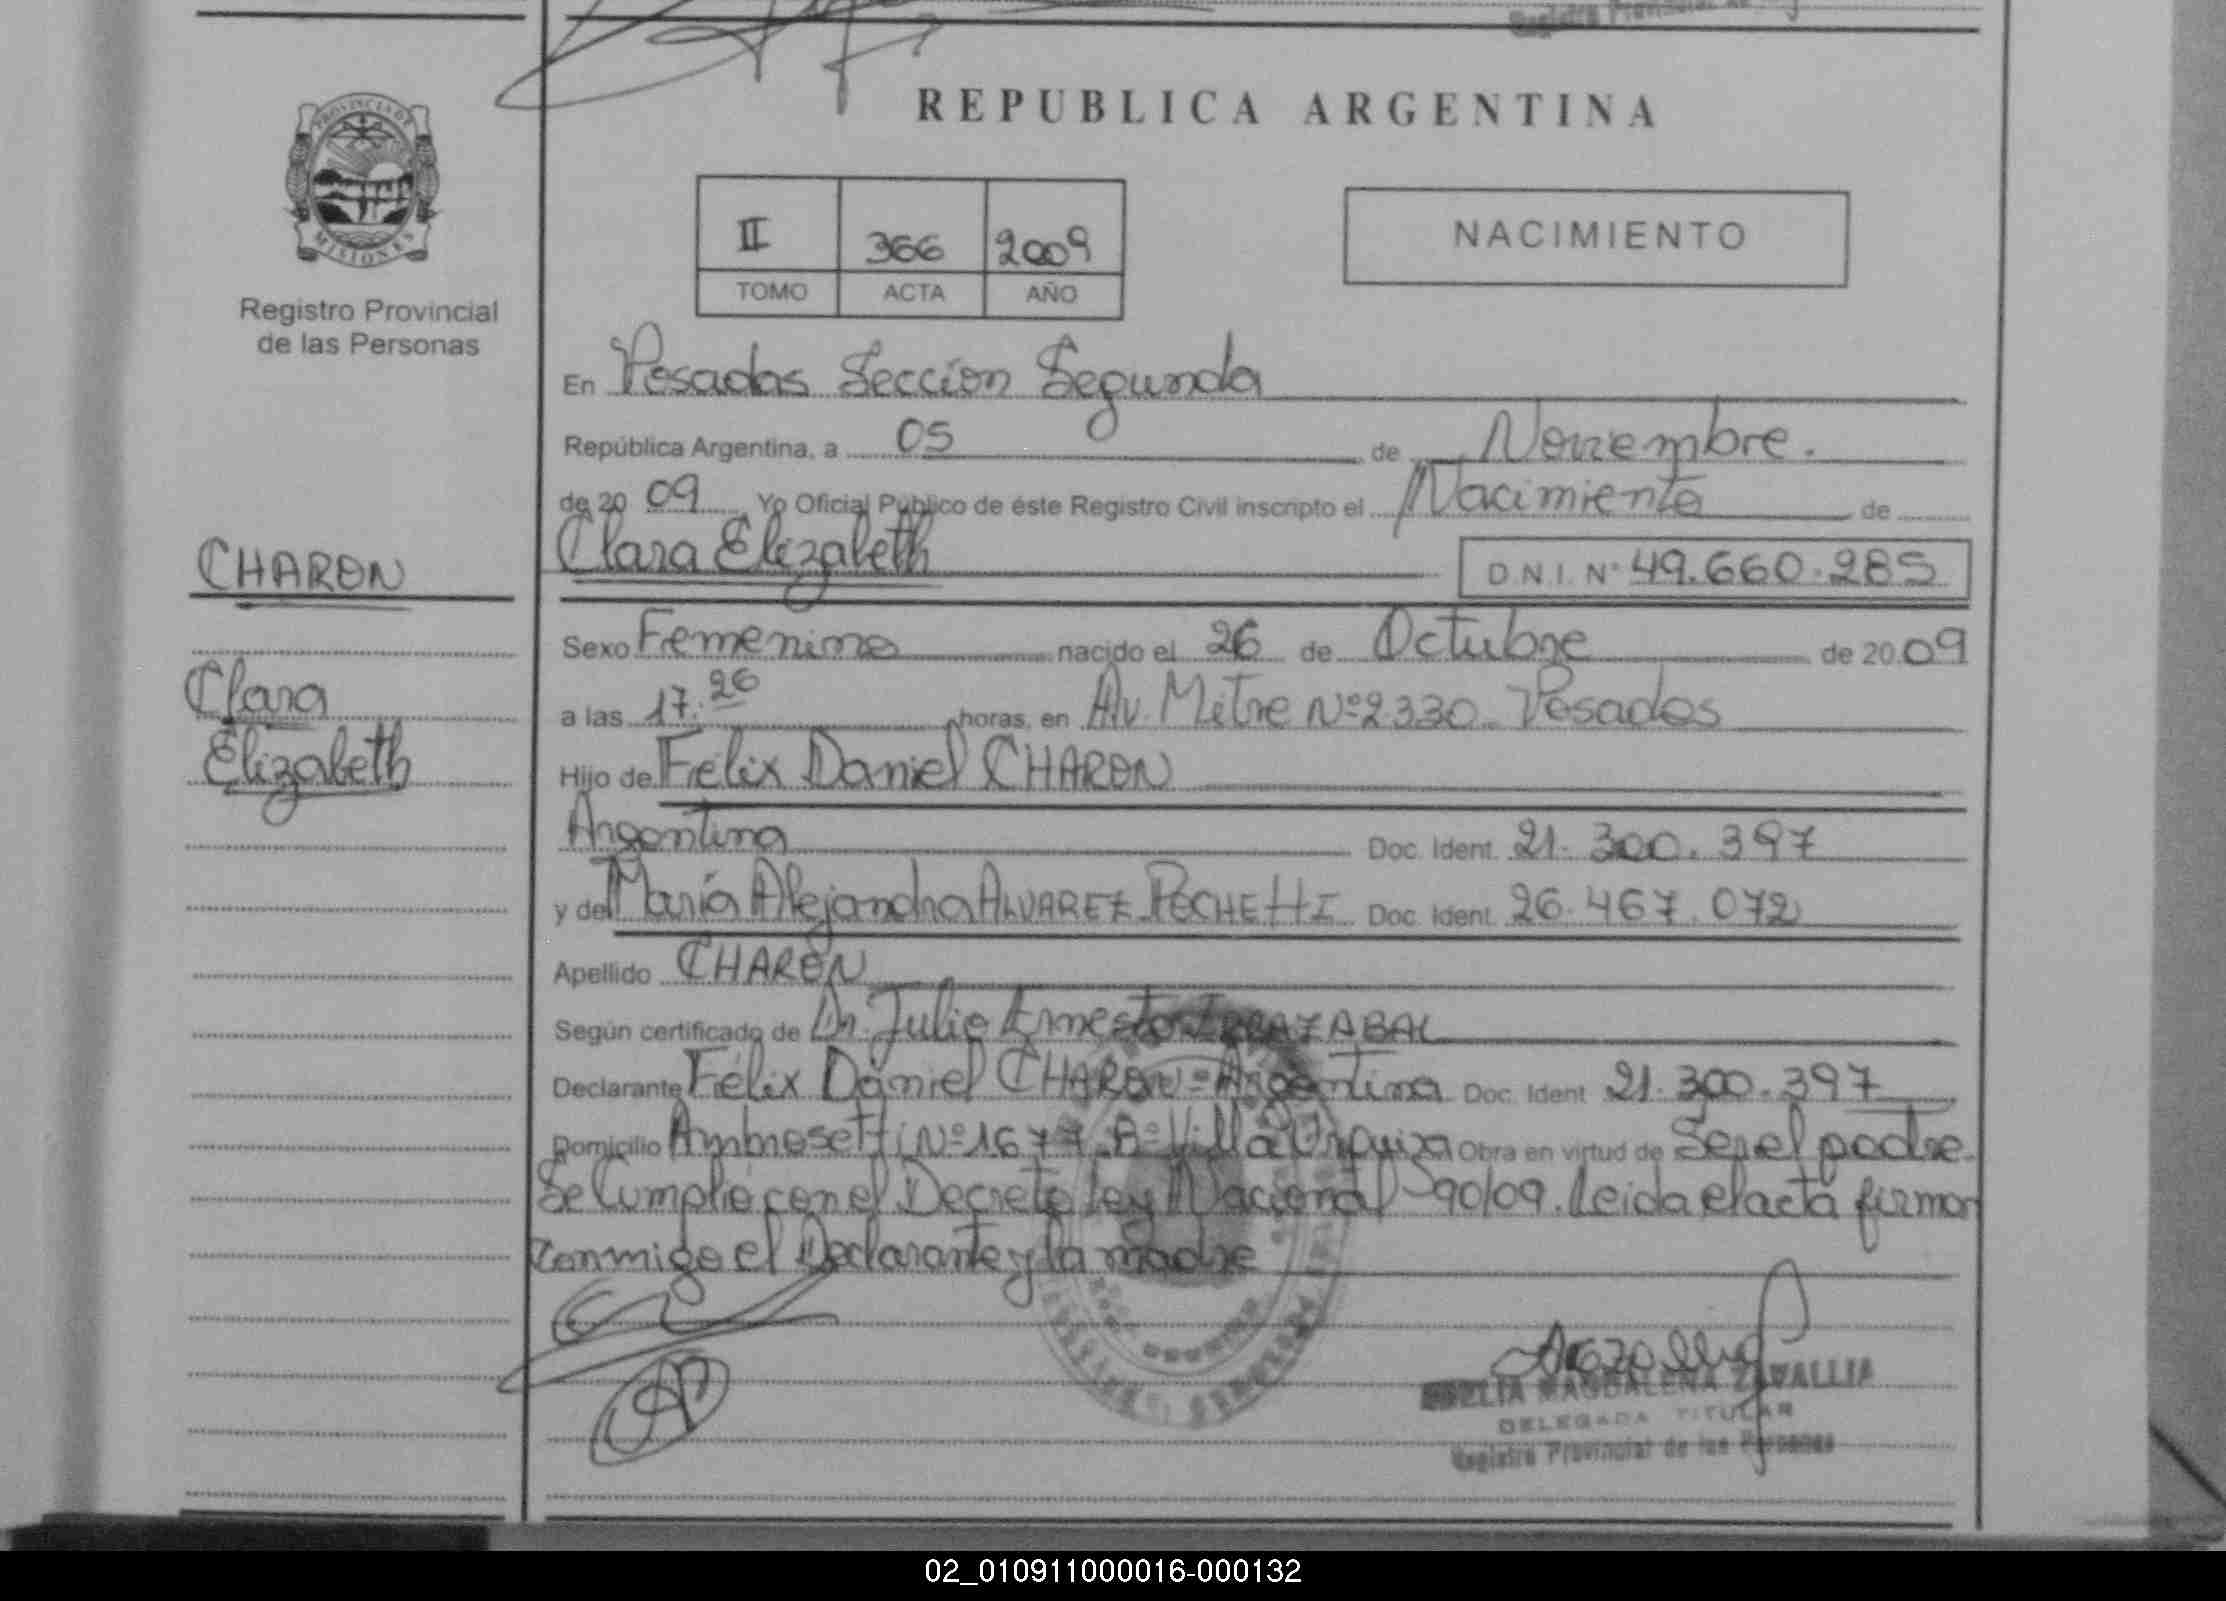 REPUBLICA ARGENTINA
PROVINCIA DE
MISIONES
Registro Provincial
de las Personas
II 366 2009
TOMO ACTA AÑO
NACIMIENTO
En Posadas Sección Segunda
República Argentina, a 05 de Noviembre.
de 20 09 Yo Oficial Público de éste Registro Civil inscripto el Nacimiento de
Clara Elizabeth D.N.I. N° 49.660.285
CHARON
Clara
Elizabeth
Sexo Femenino nacido el 26 de Octubre de 20 09
a las 17.26 horas, en Av. Mitre Nº 2330. Posadas
Hijo de Félix Daniel CHARON
Argentina Doc. Ident. 21.300.397
y de María Alejandra ALVAREZ POCHETTI Doc. Ident. 26.467.072
Apellido CHARON
Según certificado de Dr. Julio Ernesto IRRAZABAL
Declarante Félix Daniel CHARON - Argentina Doc. Ident 21.300.397
Domicilio Ambrosetti Nº 1677 Bº Villa Urquiza Obra en virtud de Ser el padre.
Se Cumplió con el Decreto Ley Nacional 90/09. Leida el acta firman
conmigo el Declarante y la madre
MAGDALENA ZAVALLIA
DELEGADA TITULAR
Registro Provincial de las Personas
02_010911000016-000132